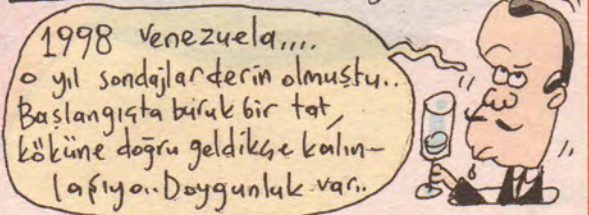 1998 Venezuela....
o yıl sondajlar derin olmuştu..
Başlangıçta buruk bir tat,
köküne doğru geldikçe kalın-
laşıyo.. Doygunluk var..